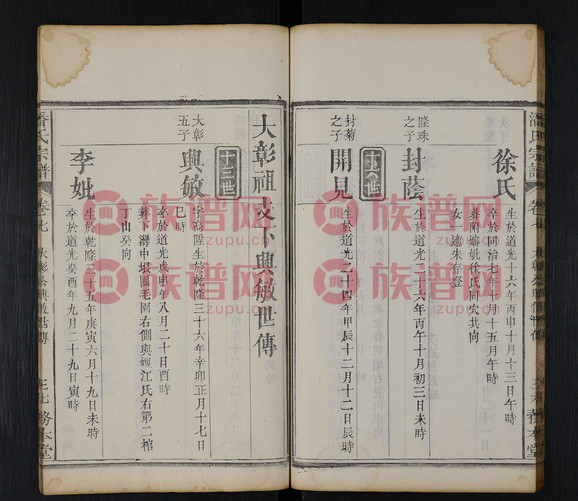 徐氏
生於道光十六年丙申十月十三日午時
卒於同治七年十月十五月午時
葬附婚妣徐氏同穴共向
女一適朱存登
隆珠之子
封蔭
生於道光二十六年丙午十月初三日未時
十六世
封菊之子
開見
生於道光二十四年甲辰十二月十二日辰時
大彰祖支下興敏世傳
十三世
大彰五子
興敏
字高陞生於乾隆三十六年辛卯正月十七日
巳時
卒於道光戊申年八月二十日酉時
葬下灣中垠園毛園右側與嫂江氏右第二棺
丁山癸向
李妣
生於乾隆三十五年庚寅六月十九日未時
卒於道光癸酉年九月二十九日寅時
潘氏宗譜
卷七
大彰公興敏世傳
敦本堂
族谱网
zupu.cn
族谱网
zupu.cn
族谱网
zupu.cn
族谱网
zupu.cn